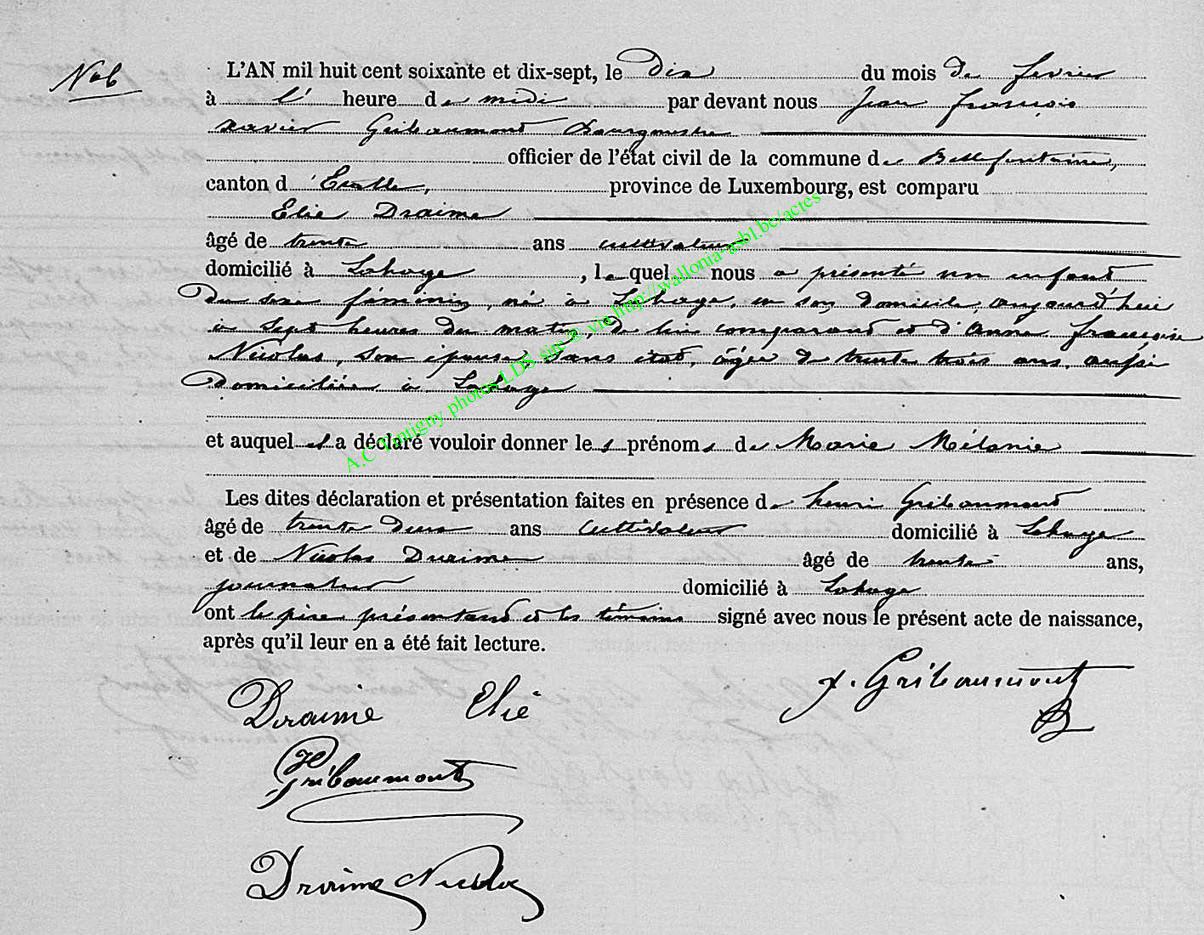 L'AN mil huit cent soixante et dix-sept, le dix du mois de fevrier
à l' heure de midi par devant nous Jean françois
xavier Gribaumont Bourgmestre
officier de l'état civil de la commune de Bellefontaine,
canton d'Etalle, province de Luxembourg, est comparu
Elie Draime
âgé de trente ans cultivateur
domicilié à Lahage, lequel nous a présenté un enfant
du sexe féminin, né à Lahage, en son domicile, aujourd'hui
à sept heures du matin, de lui comparant et d'Anne françoise
Nicolas, son épouse, sans état, âgée de trente trois ans, aussi
domiciliée à Lahage
et auquel il a déclaré vouloir donner les prénoms de Marie Mélanie
Les dites déclaration et présentation faites en présence de henri Gribaumont
âgé de trente deux ans cultivateur domicilié à Lahage
et de Nicolas Draime âgé de trente ans,
journalier domicilié à Lahage
ont le père présentant et les témoins signé avec nous le présent acte de naissance,
après qu'il leur en a été fait lecture.
Draime Elie
x. Gribaumont
H Gribaumont
Draime Nicolas
A.C Vantigny photos LDS site @ via http://wallonia-asbl.be/actes